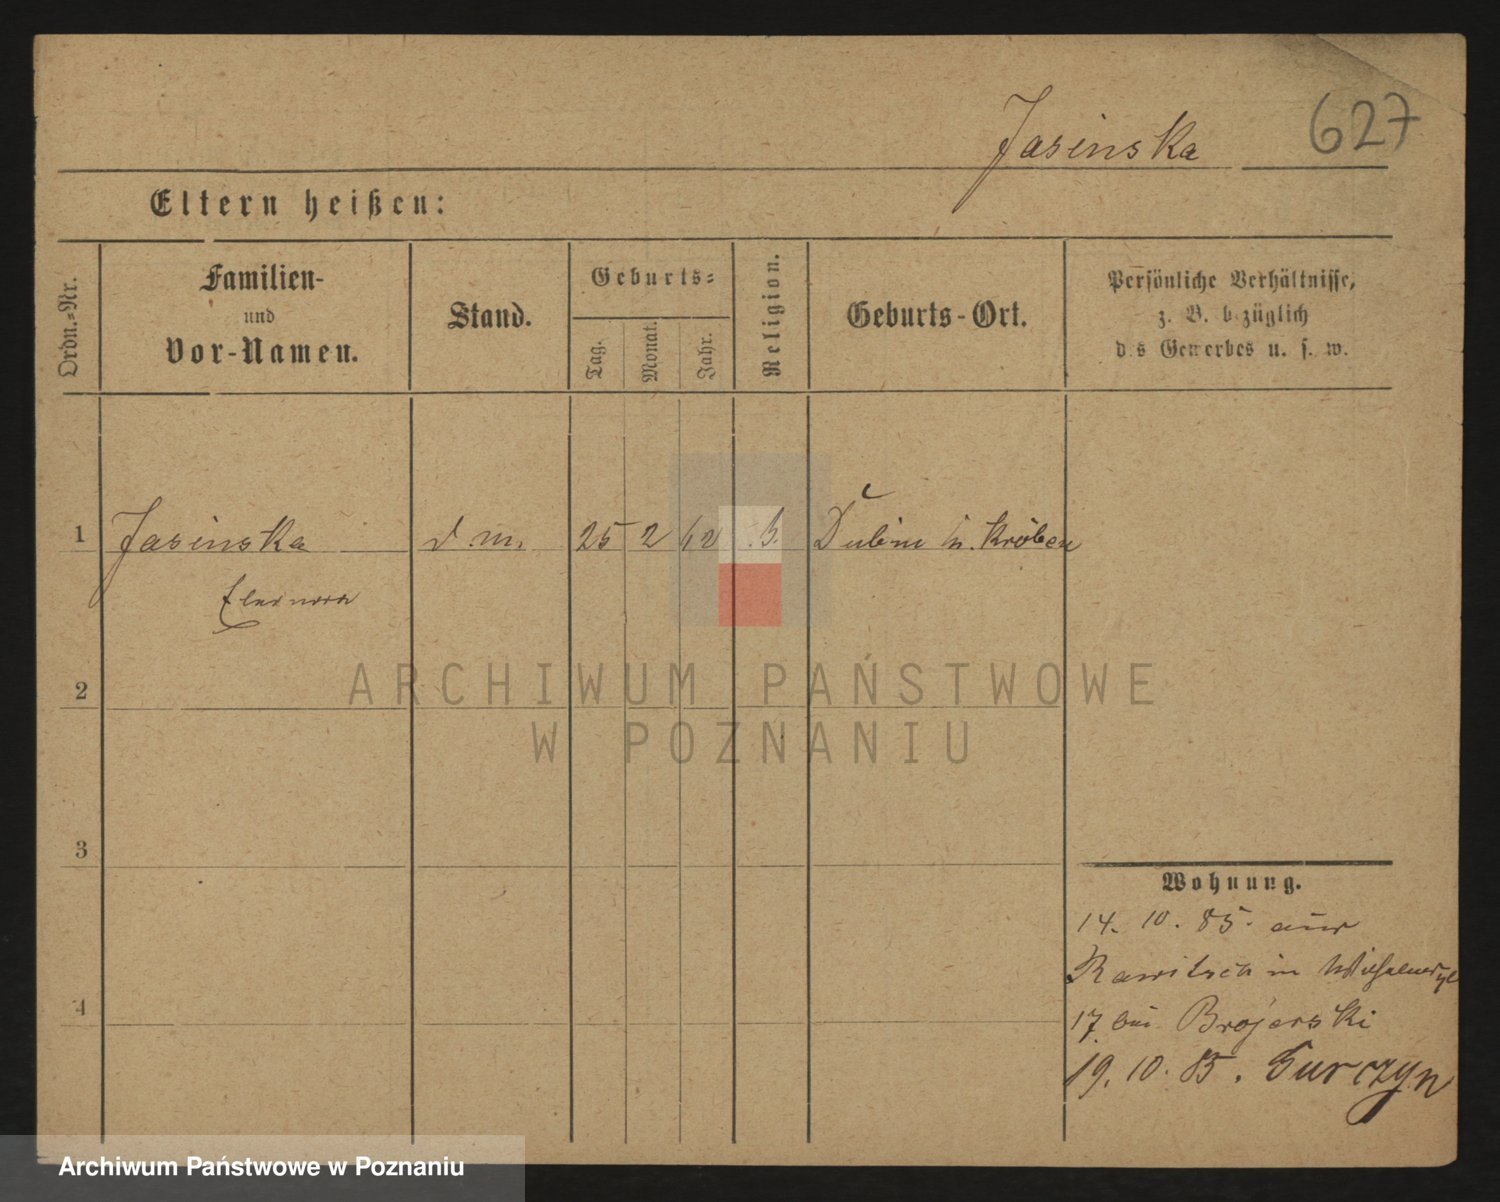 Jasinska 627
Eltern heißen:
Ordn.-Nr.
Familien-
und
Vor-Namen.
Stand.
Geburts-
Tag.
Monat.
Jahr.
Religion.
Geburts-Ort.
Persönliche Verhältnisse,
z. B. bezüglich
des Gewerbes u. s. w.
1 Jasinska d. m. 25 2 62 Dubin b. Kröben
Eleonora
2
3
4
Wohnung.
14. 10. 85. aus
Rawitsch in
17 bei Brojerski
19. 10. 85. Gurczyn
ARCHIWUM PAŃSTWOWE
W POZNANIU
Archiwum Państwowe w Poznaniu